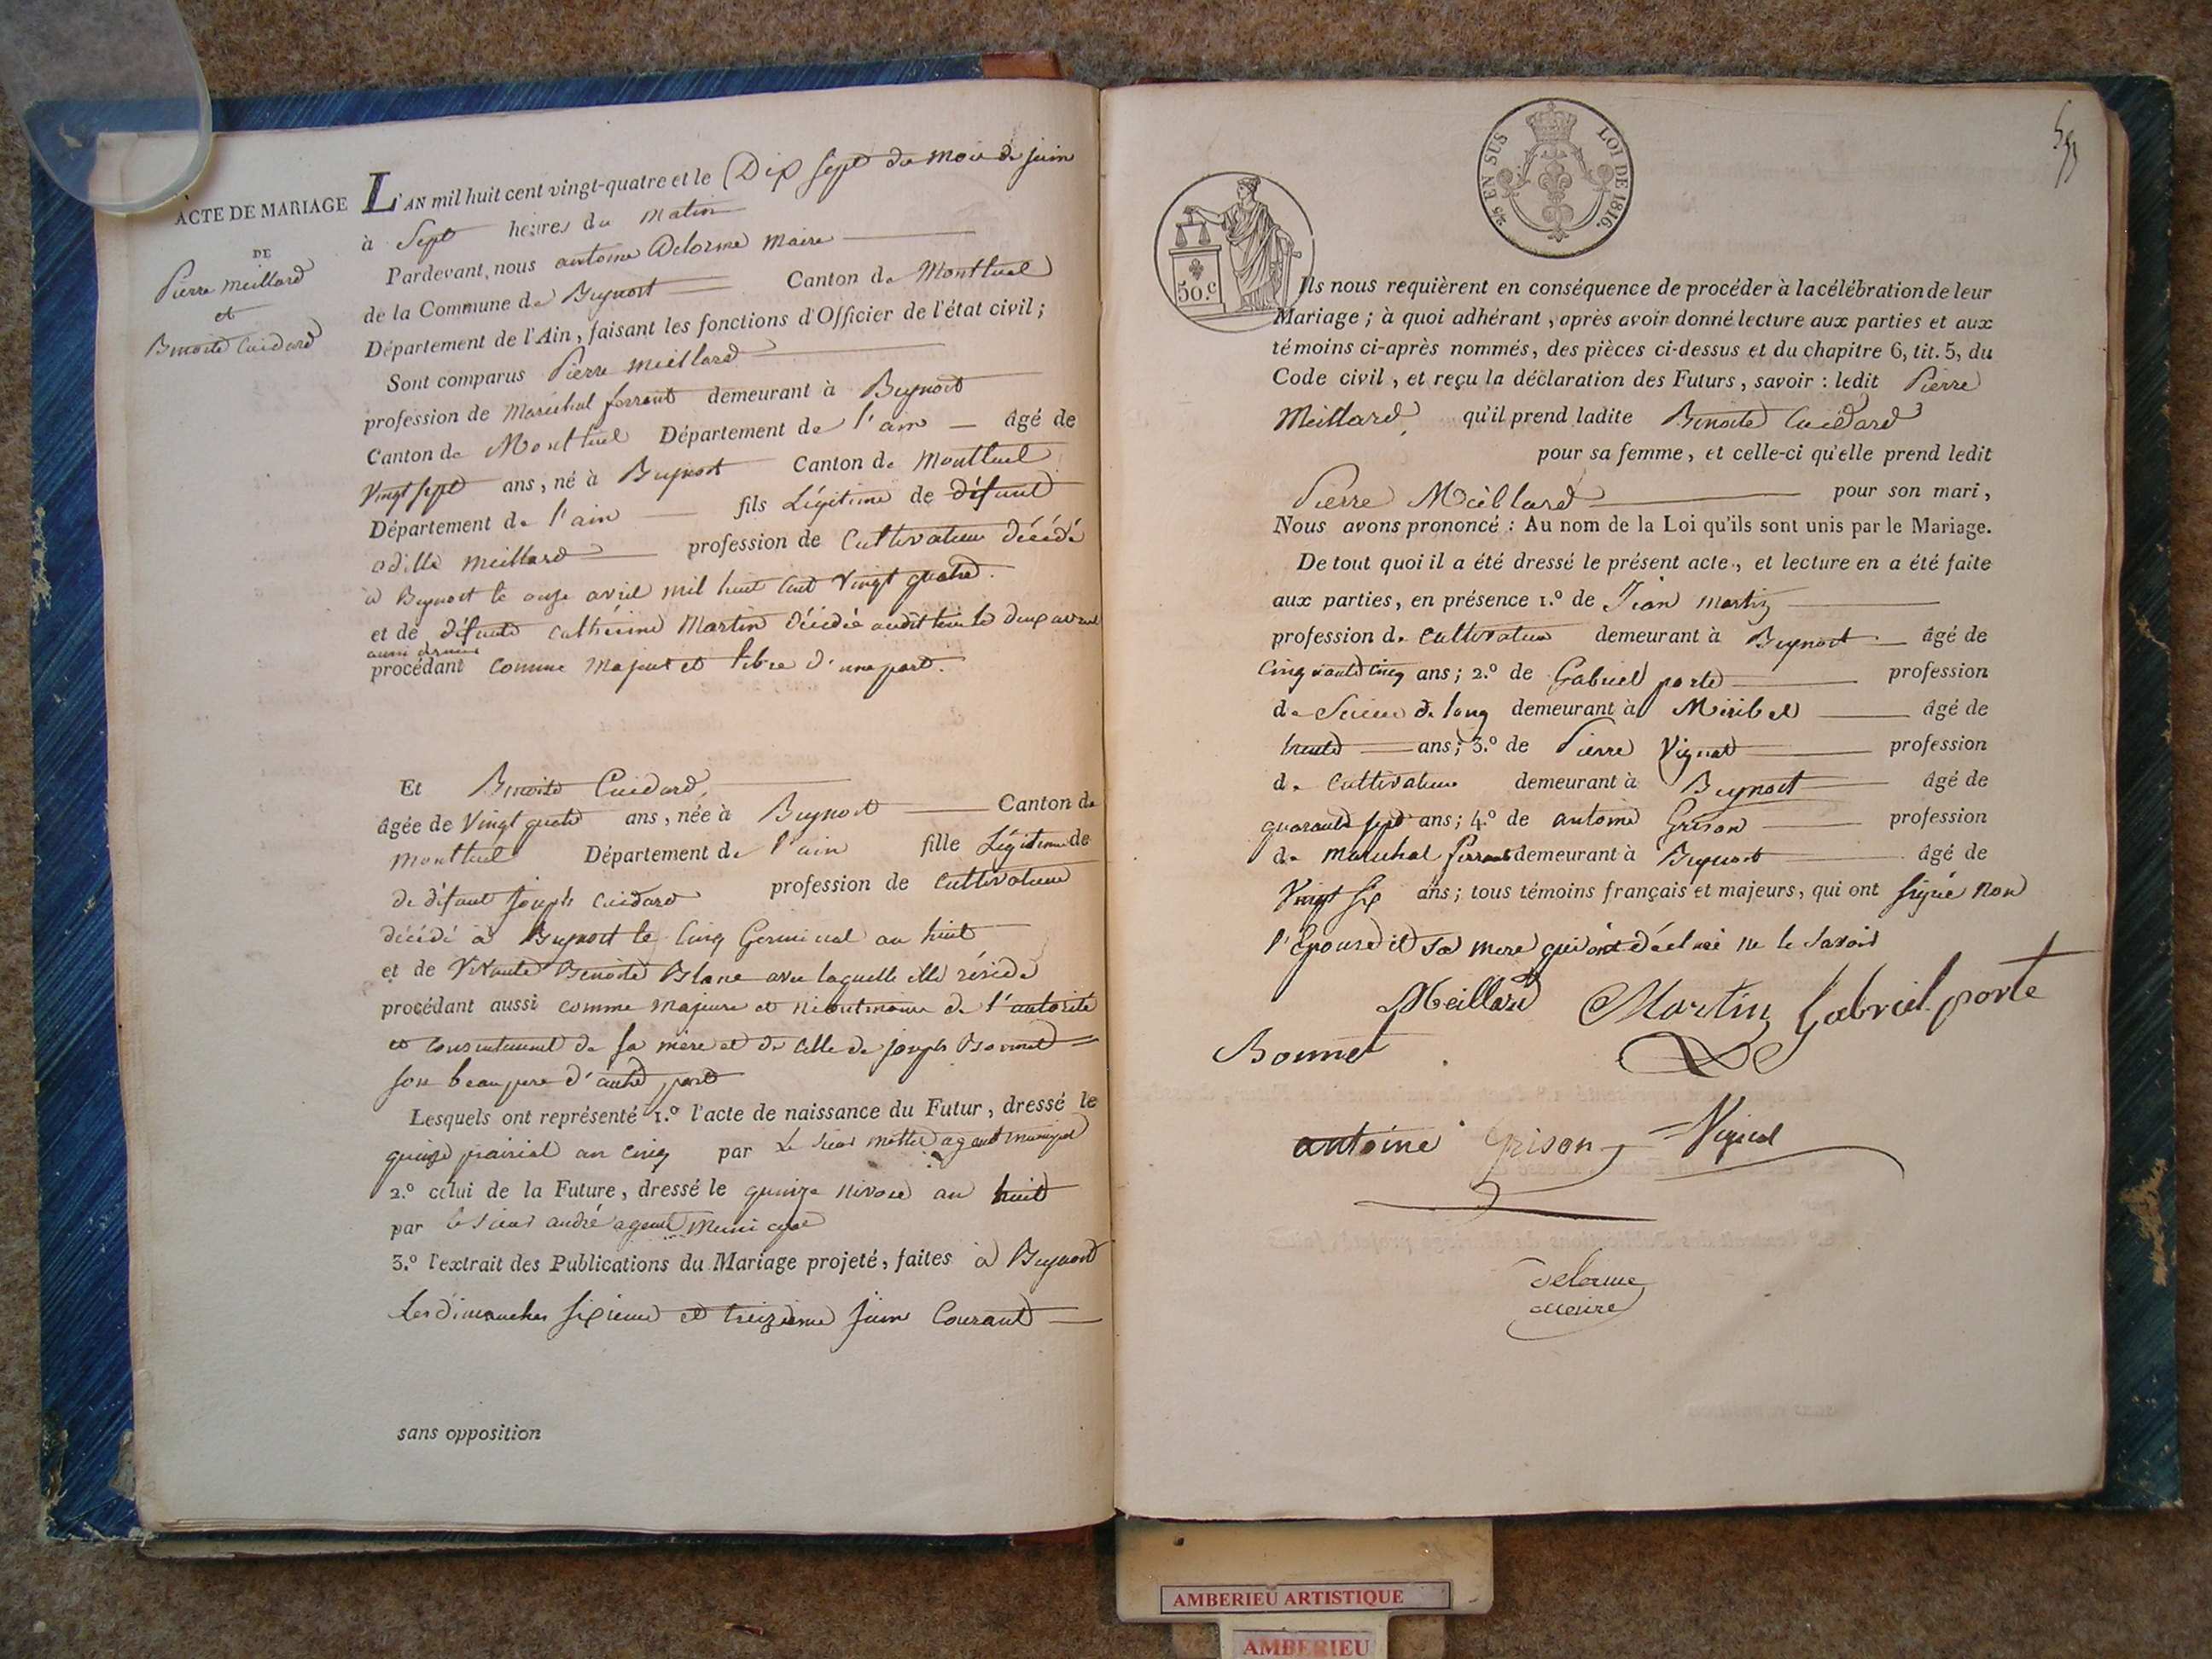 ACTE DE MARIAGE
DE
Pierre Meillard
et
Benoite Cuidard
L'AN mil huit cent vingt-quatre et le Dix Sept du mois de juin
à Sept heures du Matin
Pardevant, nous antoine Delorme Maire
de la Commune de Beynost Canton de Montluel
Département de l'Ain, faisant les fonctions d'Officier de l'état civil;
Sont comparus Pierre Meillard
profession de Maréchal ferrant demeurant à Beynost
Canton de Montluel Département de l'ain âgé de
Vingt sept ans, né à Beynost Canton de Montluel
Département de l'ain fils Légitime de défunt
odille Meillard profession de Cultivateur décédé
à Beynost le onze avril mil huit cent Vingt quatre.
et de défunte Cathérine Martin décédée audit lieu le deux avril
aussi dernier
procédant Comme Majeur et libre d'une part.
Et Benoite Cuidard,
âgée de Vingt quatre ans, née à Beynost Canton de
Montluel Département de l'ain fille Légitime de
de défunt Joseph Cuidard profession de Cultivateur
décédé à Beynost le Cinq Germinal an huit
et de Vivante Benoite Blanc avec laquelle elle réside
procédant aussi comme Majeure et néantmoins de l'autorité
et consentement de sa mère et de celle de joseph Bonnet
son beau pere d'autre part
Lesquels ont représenté 1.º l'acte de naissance du Futur, dressé le
quinze prairial an cinq par Le sieur agent municipal
2.º celui de la Future, dressé le quinze nivose an huit
par le sieur andré agent Municipal
3.º l'extrait des Publications du Mariage projeté, faites à Beynost
Les dimanches sixieme et treizieme juin Courant
sans opposition
55
2/5 EN SUS LOI DE 1816.
50.c
Ils nous requièrent en conséquence de procéder à la célébration de leur
Mariage; à quoi adhérant, après avoir donné lecture aux parties et aux
témoins ci-après nommés, des pièces ci-dessus et du chapitre 6, tit. 5, du
Code civil, et reçu la déclaration des Futurs, savoir: ledit Pierre
Meillard, qu'il prend ladite Benoite Cuidard
pour sa femme, et celle-ci qu'elle prend ledit
Pierre Meillard pour son mari,
Nous avons prononcé: Au nom de la Loi qu'ils sont unis par le Mariage.
De tout quoi il a été dressé le présent acte, et lecture en a été faite
aux parties, en présence 1.º de Jean Martin
profession de Cultivateur demeurant à Beynost âgé de
Cinquante cinq ans; 2.º de Gabriel porte profession
de Scieur de long demeurant à Miribel âgé de
trente ans; 3.º de Pierre Vignat profession
de Cultivateur demeurant à Beynost âgé de
quarante sept ans; 4.º de antoine Grison profession
de Maréchal ferrant demeurant à Beynost âgé de
Vingt six ans; tous témoins français et majeurs, qui ont signé non
l'Epouse et sa mere qui ont déclaré ne le savoir
Meillard Martin Gabriel porte
Bonnet
antoine Grison Vignat
Delorme
Maire
AMBERIEU ARTISTIQUE
AMBERIEU